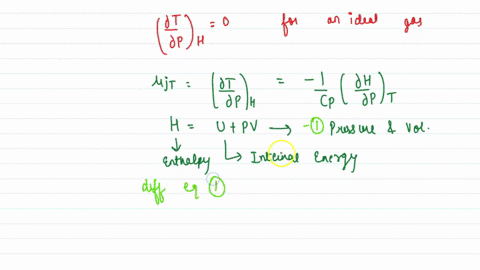 (∂T/∂P)_H = 0 for an ideal gas
μJT = (∂T/∂P)_H = -1/Cp (∂H/∂P)_T
H = U + PV → -① Pressure & Vol.
↓ Enthalpy ↳ Internal Energy
diff eq ①